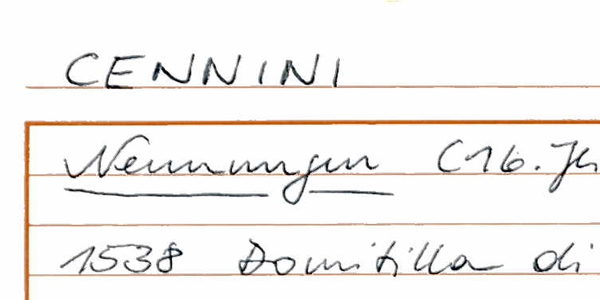 CENNINI
Nennungen (16. Jh
1538 Domitilla di